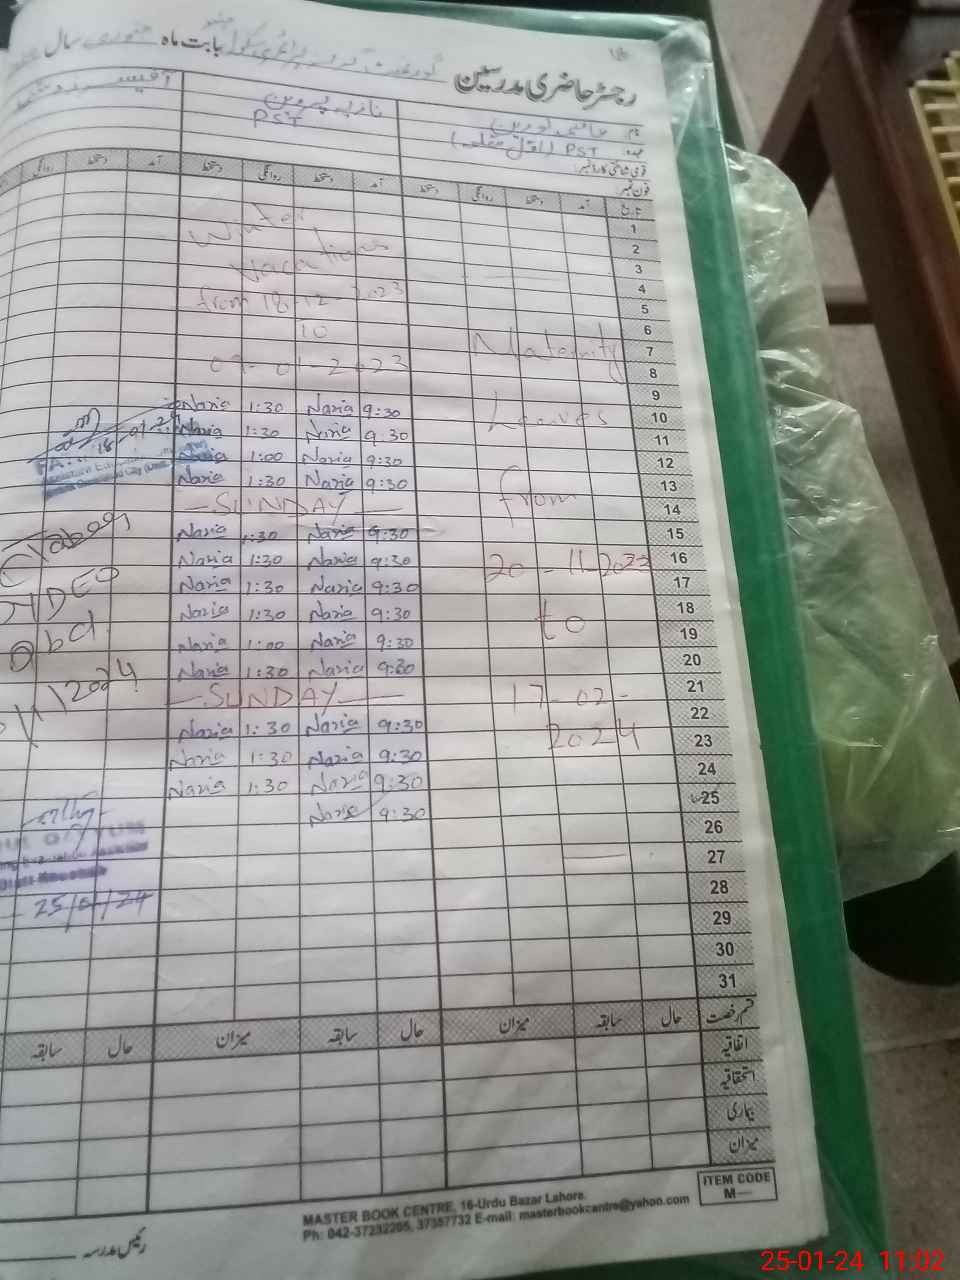 رجسٹر حاضری مدرسین گورنمنٹ بابت ماہ جنوری سال
نام
عہدہ PST
نازیہ پروین
PST
قومی شناختی کارڈ نمبر:
فون نمبر
تاریخ آمد دستخط روانگی دستخط آمد دستخط روانگی دستخط آمد دستخط روانگی
1
2
3
4
5
6
7
8
9
10
11
12
13
14
15
16
17
18
19
20
21
22
23
24
25
26
27
28
29
30
31
Maternity
Leaves
from
20-11-2023
to
17-02-
2024
Winter
Vacations
from 18-12-2023
to
09-01-2023
Nazia 1:30 Nazia 9:30
Nazia 1:30 Nazia 9:30
Nazia 1:00 Nazia 9:30
Nazia 1:30 Nazia 9:30
—SUNDAY—
Nazia 1:30 Nazia 9:30
Nazia 1:30 Nazia 9:30
Nazia 1:30 Nazia 9:30
Nazia 1:30 Nazia 9:30
Nazia 1:00 Nazia 9:30
Nazia 1:30 Nazia 9:30
—SUNDAY—
Nazia 1:30 Nazia 9:30
Nazia 1:30 Nazia 9:30
Nazia 1:30 Nazia 9:30
Nazia 9:30
25/01/24
قسم رخصت حال سابقہ میزان حال سابقہ میزان حال سابقہ
اتفاقیہ
استحقاقیہ
بیماری
میزان
ITEM CODE
M—
MASTER BOOK CENTRE, 16-Urdu Bazar Lahore.
Ph: 042-37232205, 37357732 E-mail: masterbookcantre@yahoo.com
رئیس مدرسہ
25-01-24 11:02